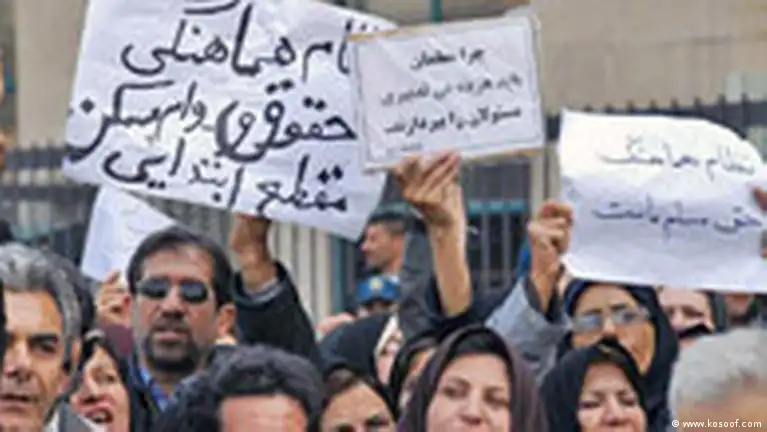 نظام هماهنگی
حقوقی و وام مسکن
مقطع ابتدایی
چرا معلمان
باید هزینه بی تدبیری
مسئولان را بپردازند
نظام هماهنگ
حق مسلم ماست
© www.kosoof.com